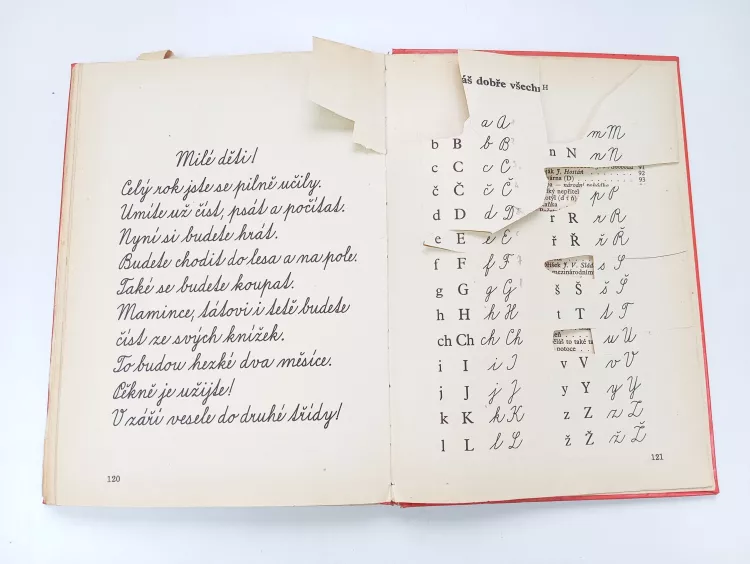 Milé děti!
Celý rok jste se pilně učily.
Umíte už číst, psát a počítat.
Nyní si budete hrát.
Budete chodit do lesa a na pole.
Také se budete koupat.
Mamince, tátovi i tetě budete
číst ze svých knížek.
To budou hezké dva měsíce.
Pěkně je užijte!
V září vesele do druhé třídy!
120
áš dobře všech
H
a A
b B b B
c C c C
č Č č Č
d D d D
e E e E
f F f F
g G g G
h H h H
ch Ch ch Ch
i I i I
j J j J
k K k K
l L l L
m M
n N n N
J. Hostán 91
(D) 92
národní 93
nepřítel
p P
r R r R
ř Ř ř Ř
J. V. Slád
mezinárodním
s S
š Š š Š
t T t T
to také
notoce
u U
v V v V
y Y y Y
z Z z Z
ž Ž ž Ž
121